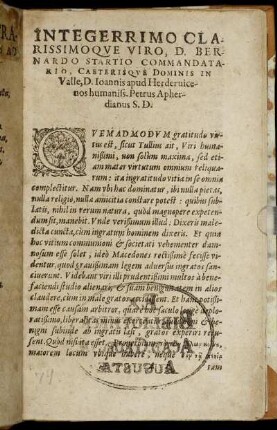 INTEGERRIMO CLA
RISSIMOQVE VIRO, D. BER-
NARDO STARTIO COMMANDATA-
RIO, CAETERISQVE DOMINIS IN
Valle, D. Ioannis apud Herdervice-
nos humaniss. Petrus Apher-
dianus S. D.
QVEMADMODVM gratitudo vir-
tus est, sicut Tullius ait, Viri huma-
nissimi, non solum maxima, sed eti-
am mater virtutum omnium reliqua-
rum: ita ingratitudo vitia in se omnia
complectitur. Nam vbi hac dominatur, ibi nulla pietas,
nulla religio, nulla amicitia constare potest: quibus sub-
latis, nihil in rerum natura, quod magnopere expeten-
dum sit, manebit. Vnde verissimum illud: Dixeris male-
dicta cuncta, cùm ingratum hominem dixeris. Et quia
hoc vitium communioni & societati vehementer dam-
nosum esse solet; ideò Macedones rectissimè fecisse vi-
dentur, quod grauissimam legem aduersus ingratos san-
ciuerunt. Videbant viri illi prudentissimi multos à bene-
faciendi studio alienari, & suam benignitatem in alios
claudere, cùm in malè gratos incidissent. Et hanc potissi-
mam esse causam arbitror, quare hoc saculo longè
liberalitas
subinde ab ingratis
sent. Quòd nisi ita esset,
maiorem locum vbique haberet,
ram
BIBLIOTHECA
AUGUSTA